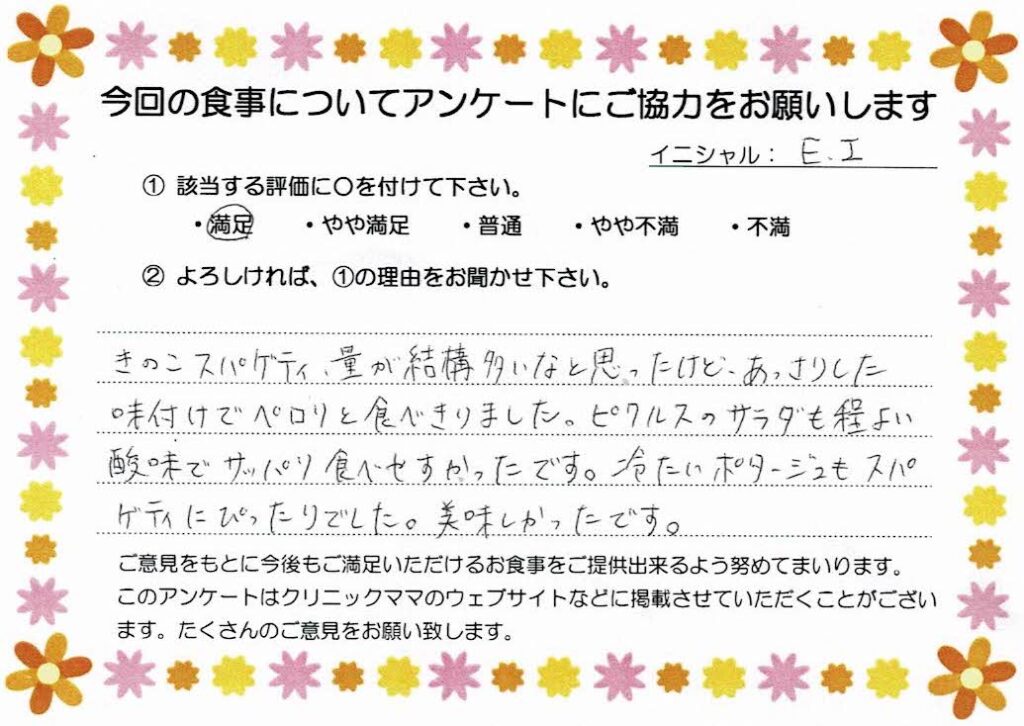 今回の食事についてアンケートにご協力をお願いします
イニシャル： E.I
① 該当する評価に〇を付けて下さい。
・満足 ・やや満足 ・普通 ・やや不満 ・不満
② よろしければ、①の理由をお聞かせ下さい。
きのこスパゲティ、量が結構多いなと思ったけど、あっさりした
味付けでペロリと食べきりました。ピクルスのサラダも程よい
酸味でサッパリ食べやすかったです。冷たいポタージュもスパ
ゲティにぴったりでした。美味しかったです。
ご意見をもとに今後もご満足いただけるお食事をご提供出来るよう努めてまいります。
このアンケートはクリニックママのウェブサイトなどに掲載させていただくことがござい
ます。たくさんのご意見をお願い致します。